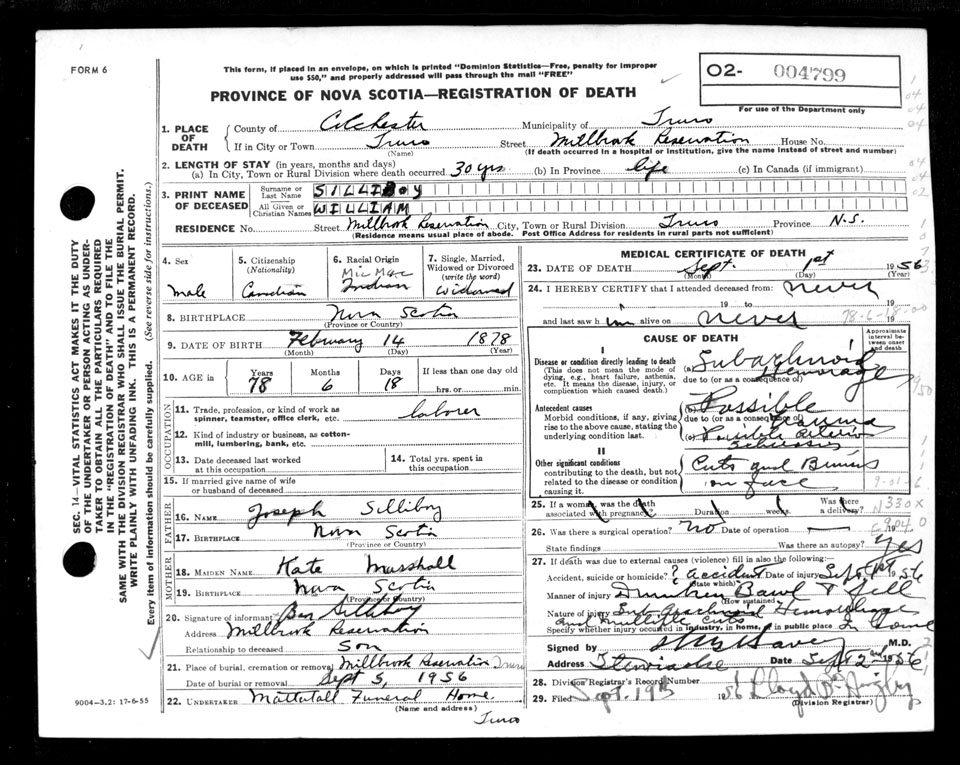 FORM 6
This form, if placed in an envelope, on which is printed "Dominion Statistics—Free, penalty for improper
use $50," and properly addressed will pass through the mail "FREE"
O2- 004799
For use of the Department only
PROVINCE OF NOVA SCOTIA—REGISTRATION OF DEATH
1. PLACE OF DEATH
County of Colchester Municipality of Truro
If in City or Town Truro Street Millbrook Reservation House No.
(Name) (If death occurred in a hospital or institution, give the name instead of street and number)
2. LENGTH OF STAY (in years, months and days)
(a) In City, Town or Rural Division where death occurred 30 yrs (b) In Province life (c) In Canada (if immigrant)
3. PRINT NAME OF DECEASED
Surname or Last Name SILLIBOY
All Given or Christian Names WILLIAM
RESIDENCE No. Street Millbrook Reservation City, Town or Rural Division Truro Province N.S.
(Residence means usual place of abode. Post Office Address for residents in rural parts not sufficient)
4. Sex
male
5. Citizenship
(Nationality)
Canadian
6. Racial Origin
Mic Mac
Indian
7. Single, Married,
Widowed or Divorced
(write the word)
Widowed
8. BIRTHPLACE Nova Scotia
(Province or Country)
9. DATE OF BIRTH February 14 1878
(Month) (Day) (Year)
10. AGE in
Years Months Days If less than one day old
78 6 18 hrs. or min.
OCCUPATION
11. Trade, profession, or kind of work as
spinner, teamster, office clerk, etc. laborer
12. Kind of industry or business, as cotton-
mill, lumbering, bank, etc.
13. Date deceased last worked
at this occupation
14. Total yrs. spent in
this occupation
15. If married give name of wife
or husband of deceased
FATHER
16. NAME Joseph Silliboy
17. BIRTHPLACE Nova Scotia
(Province or Country)
MOTHER
18. MAIDEN NAME Kate Marshall
19. BIRTHPLACE Nova Scotia
(Province or Country)
20. Signature of informant Ben Silliboy
Address Millbrook Reservation
Relationship to deceased Son
21. Place of burial, cremation or removal Millbrook Reservation Truro
Date of burial or removal Sept 5, 1956
22. UNDERTAKER Mattatall Funeral Home
(Name and address)
Truro
MEDICAL CERTIFICATE OF DEATH
23. DATE OF DEATH Sept. 1st 1956
(Month) (Day) (Year)
24. I HEREBY CERTIFY that I attended deceased from: never
19 to 19
and last saw him alive on never 19
78-6-18-00
CAUSE OF DEATH
Approximate
interval between
onset and death
I
Disease or condition directly leading to death
(This does not mean the mode of
dying, e.g., heart failure, asthenia,
etc. It means the disease, injury, or
complication which caused death.)
(a) Subarachnoid
Hemorrage
due to (or as a consequence of)
Antecedent causes
Morbid conditions, if any, giving
rise to the above cause, stating the
underlying condition last.
(b) Possible
Trauma
due to (or as a consequence of)
(c) Possible Arterio
II
Other significant conditions
contributing to the death, but not
related to the disease or condition
causing it.
Cuts and Bruises
on face
25. If a woman, was the death
associated with pregnancy? Duration weeks. Was there
a delivery?
N330X
26. Was there a surgical operation? No Date of operation 19
State findings Was there an autopsy? Yes
27. If death was due to external causes (violence) fill in also the following:—
Accident, suicide or homicide? ? accident Date of injury Sept 1st 1956
(State which)
Manner of injury Drunken Bawl & fell
(How sustained)
Nature of injury Sub arachnoid Hemorrhage
and multiple cuts
Specify whether injury occurred in industry, in home, or in public place In Home
Signed by M.D.
Address Stewiacke Date Sept 2nd 1956
28. Division Registrar's Record Number
29. Filed Sept. 19th 1956
(Division Registrar)
SEC. 14. VITAL STATISTICS ACT MAKES IT THE DUTY
OF THE UNDERTAKER OR PERSON ACTING AS UNDER-
TAKER TO OBTAIN ALL THE PARTICULARS REQUIRED
IN THE "REGISTRATION OF DEATH" AND TO FILE THE
SAME WITH THE DIVISION REGISTRAR WHO SHALL ISSUE THE BURIAL PERMIT.
WRITE PLAINLY WITH UNFADING INK. THIS IS A PERMANENT RECORD.
Every item of information should be carefully supplied. (See reverse side for instructions.)
9004—3.2: 17-6-55